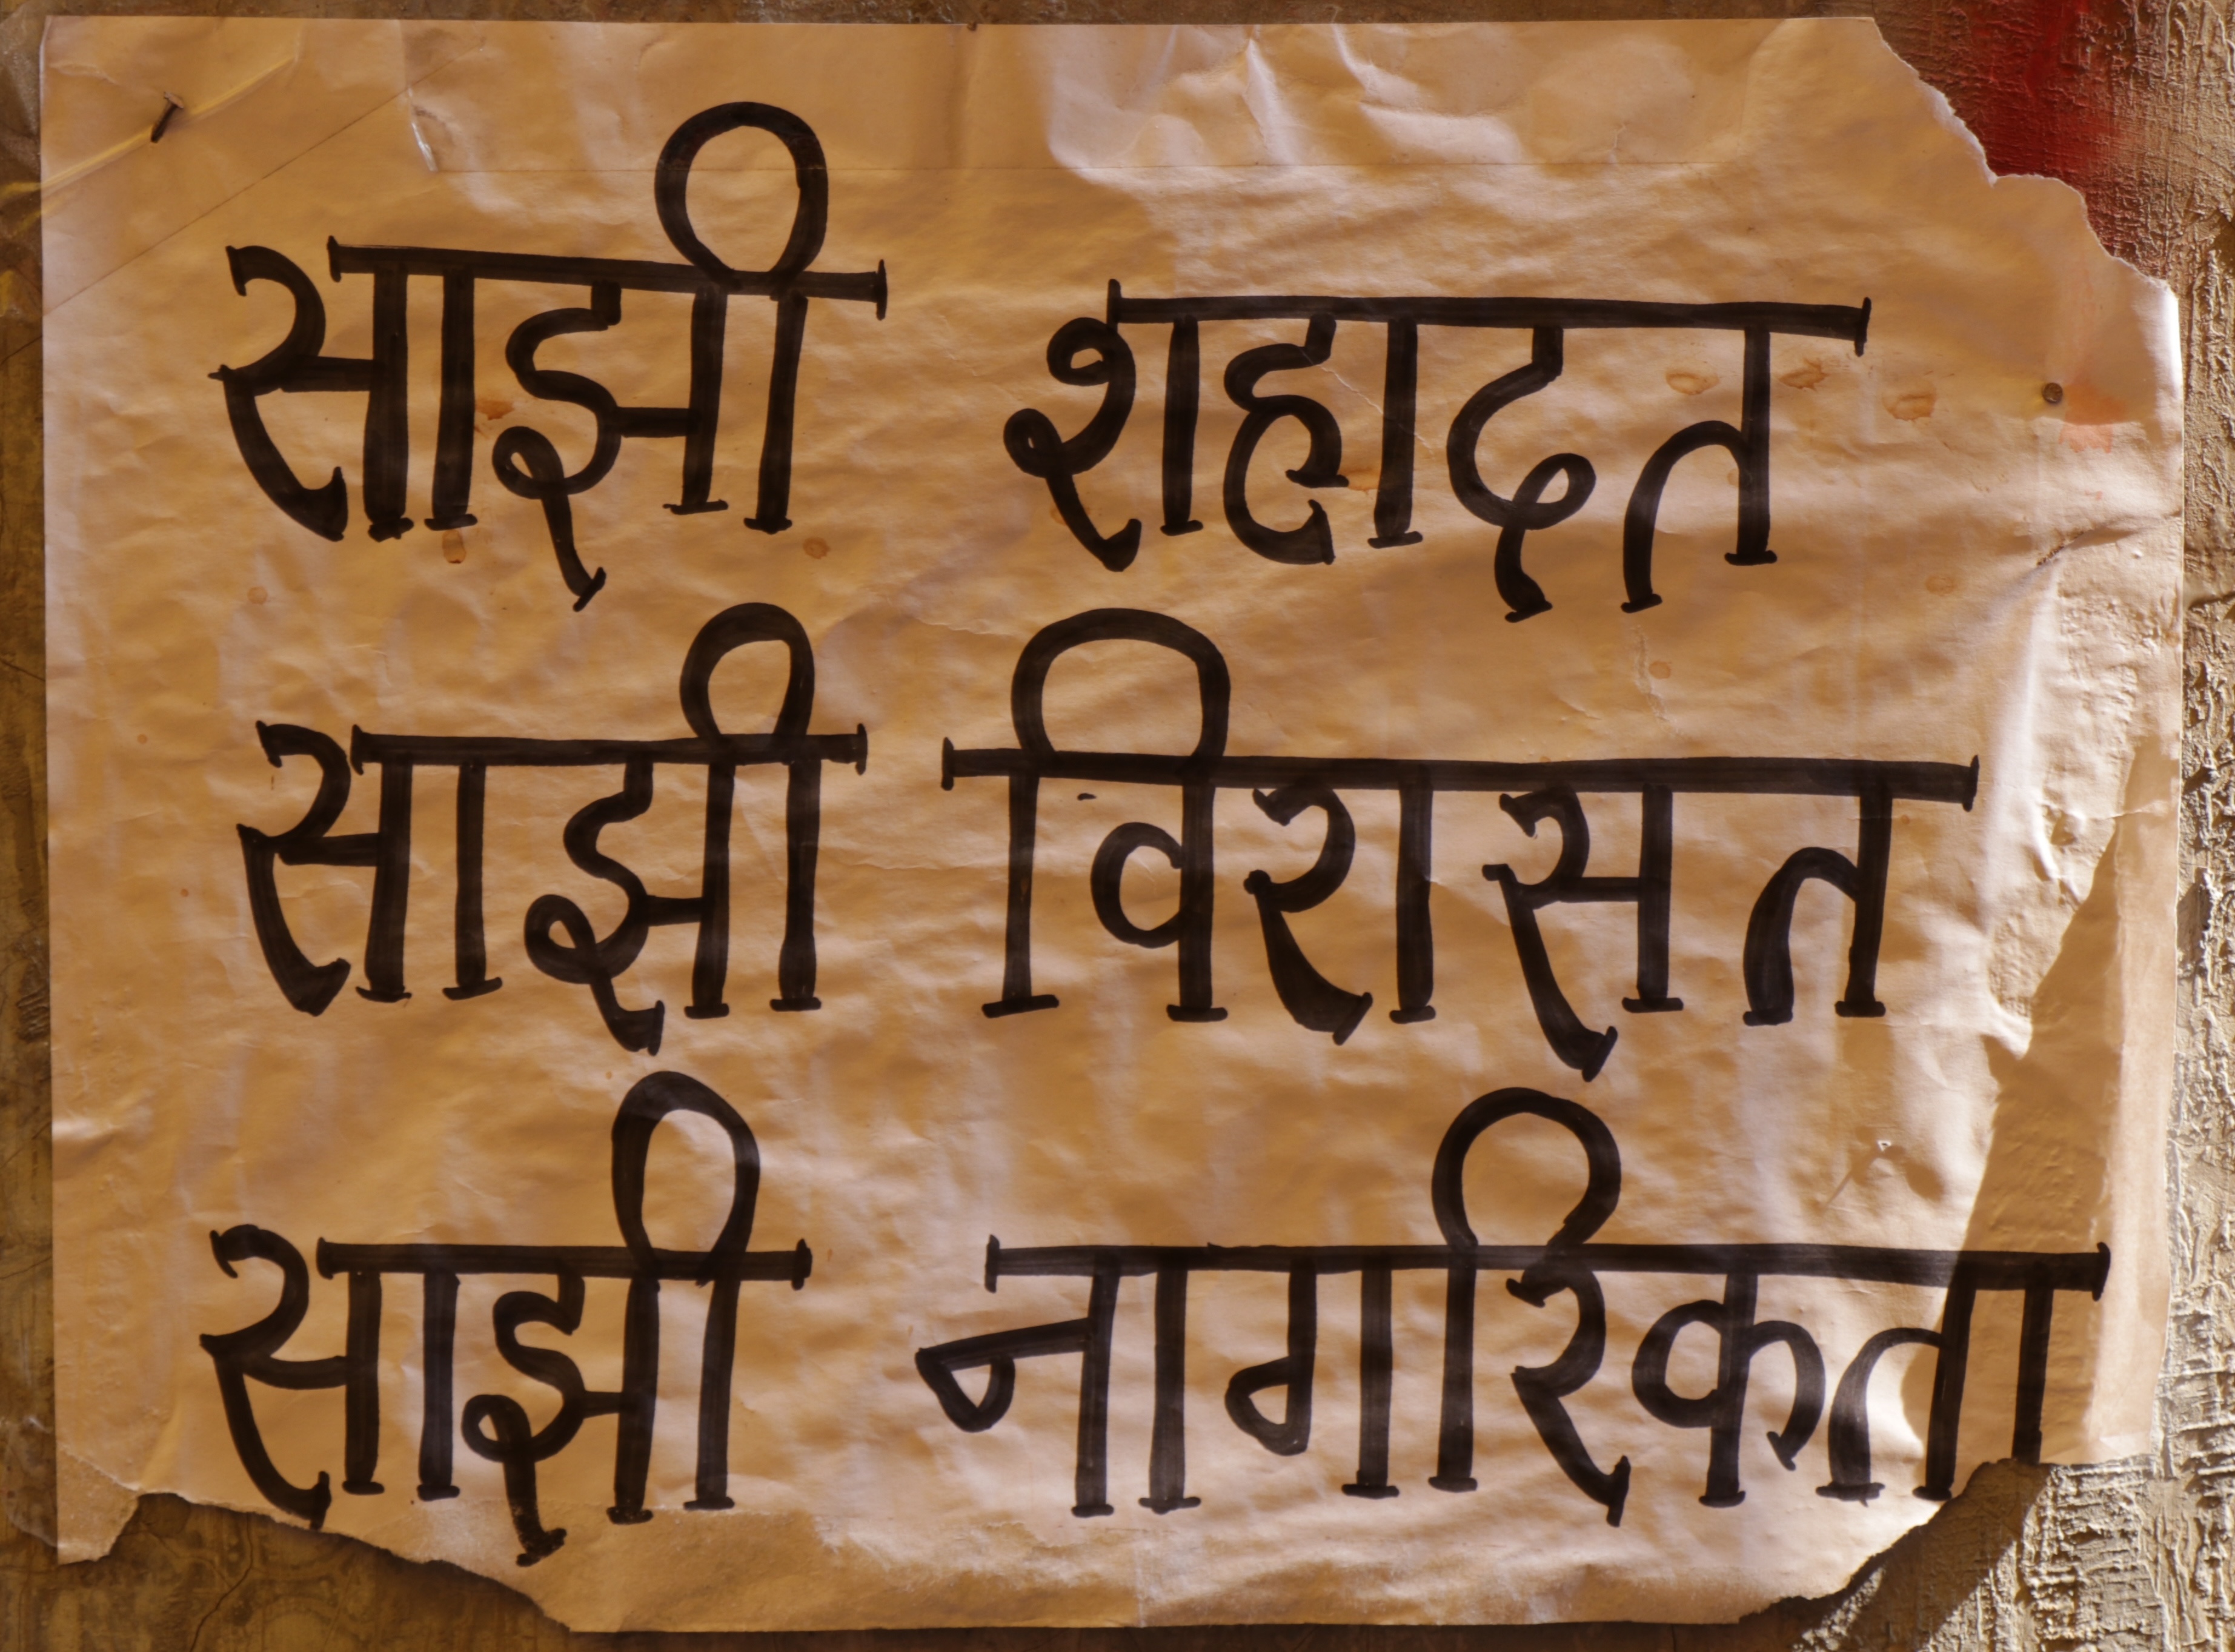 साझी शहादत
साझी विरासत
साझी नागरिकता